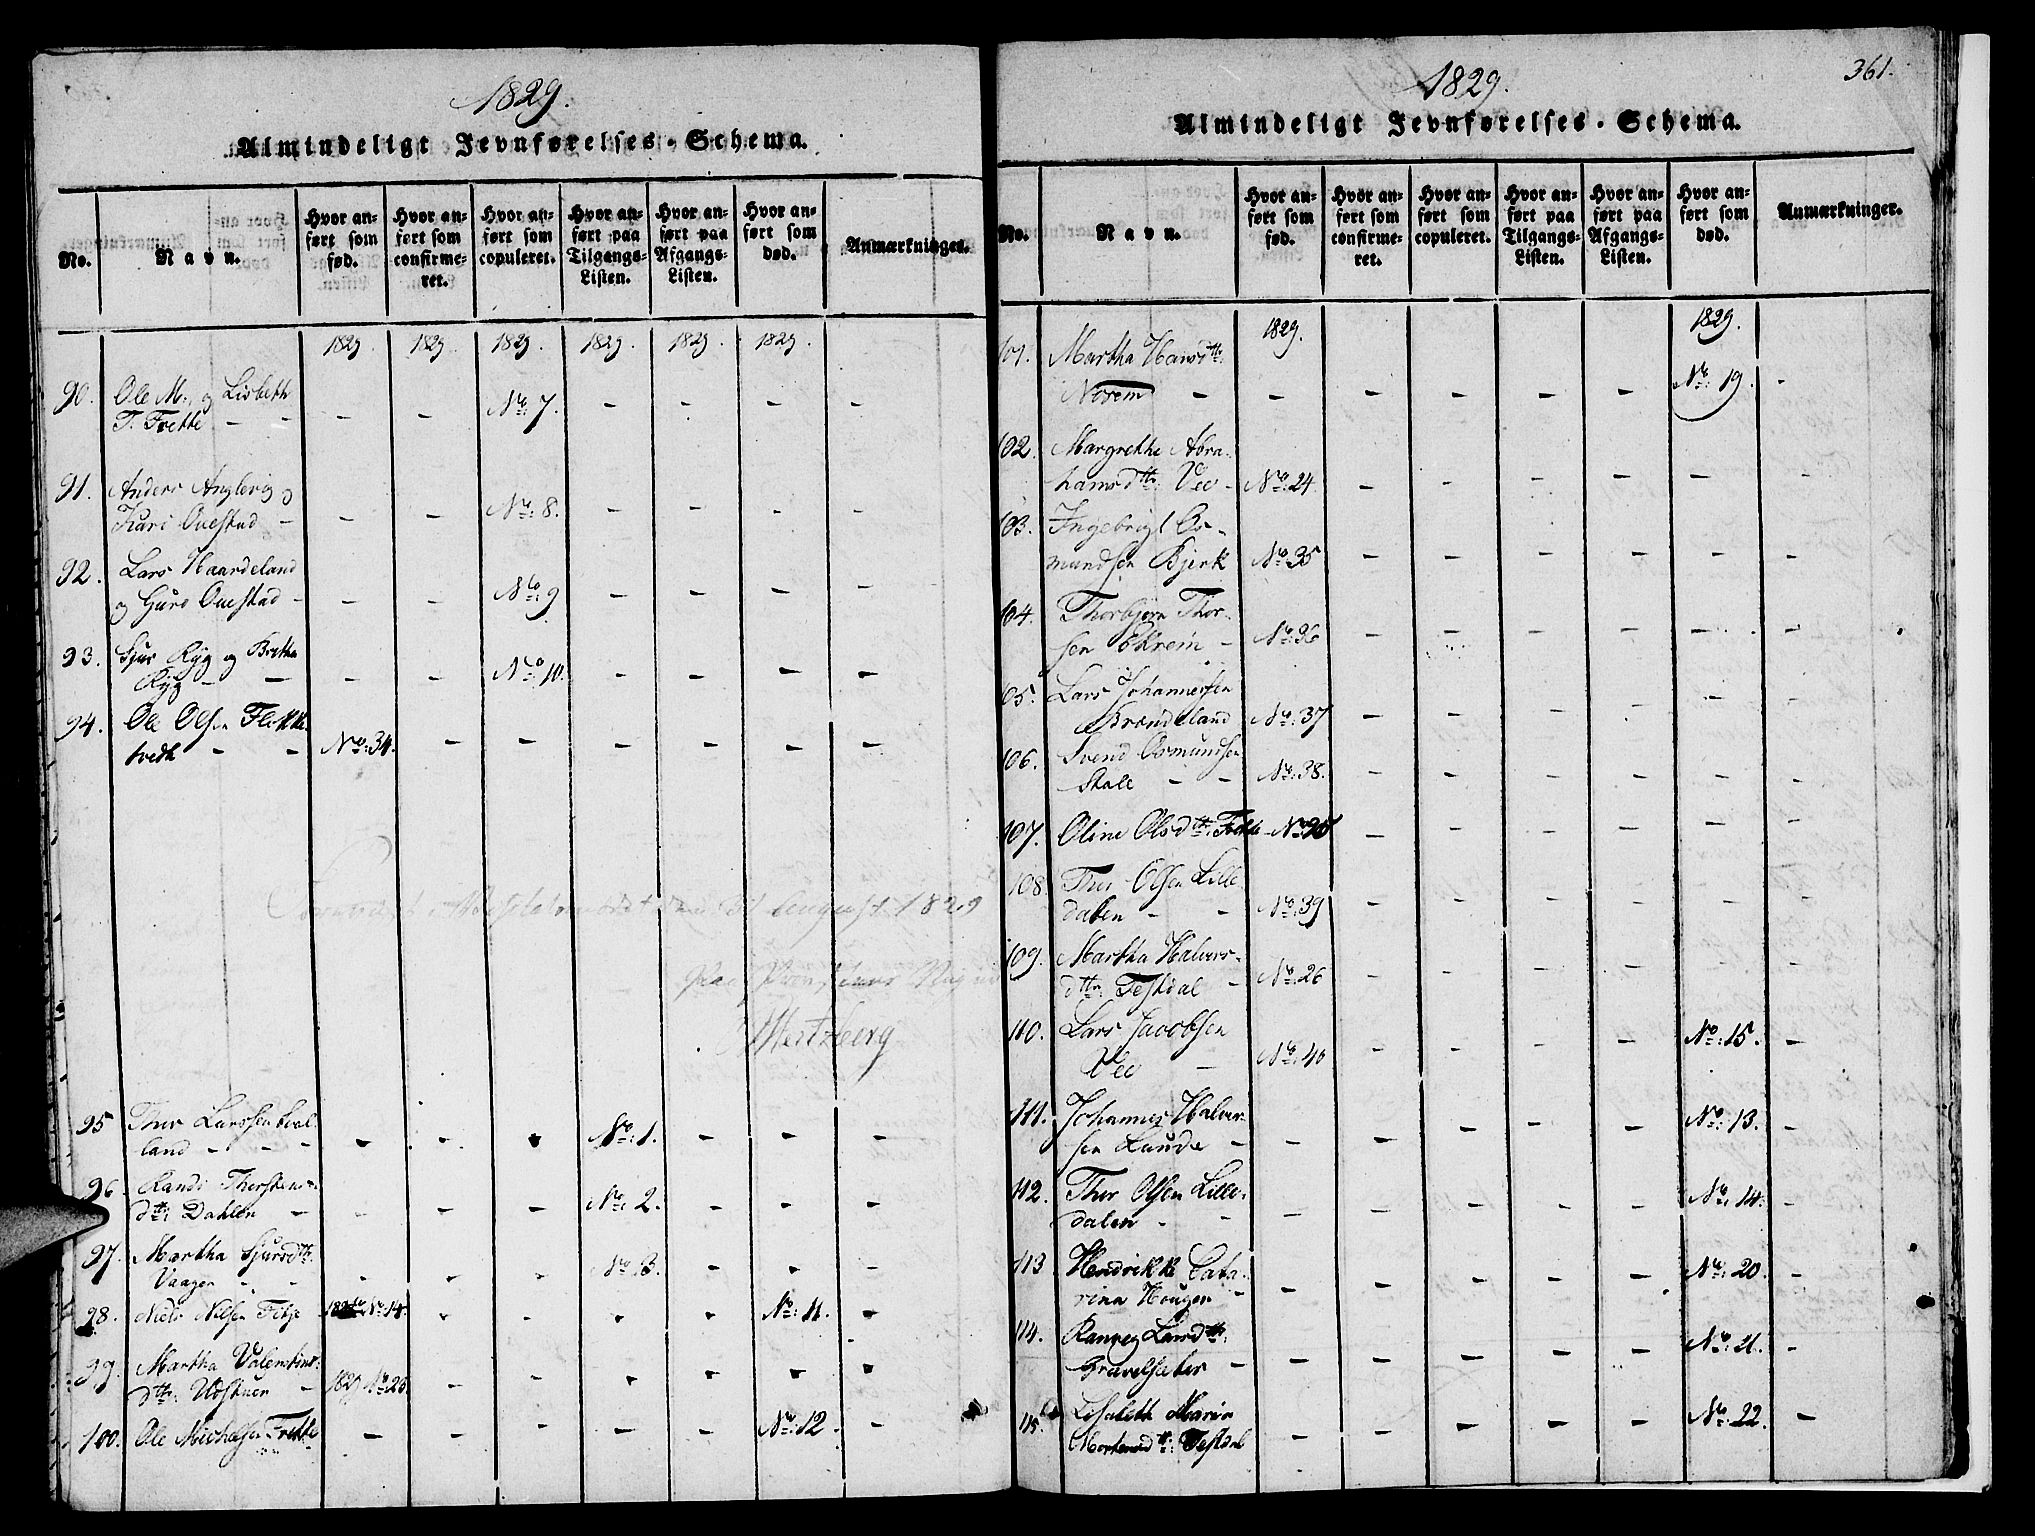 1829.
Almindeligt Jevnførelses-Schema.
No.
Navn.
Hvor anført som fød.
Hvor anført som confirmeret.
Hvor anført som copuleret.
Hvor anført paa Tilgangs-Listen.
Hvor anført paa Afgangs-Listen.
Hvor anført som død.
Anmærkninger.
1829. 1829. 1829. 1829. 1829. 1829.
90. Ole M. og Lisbeth
T. Frette - - - - No: 7. - - - -
91. Anders og
Kari Questad - - - No: 8. - - - -
92. Lars Haardeland
og Guro Questad - - - No: 9 - - - -
93. Sjur Ryg og Britha
Ryg - - - - No: 10. - - - -
94. Ole Olsen Flekke
tvedt - - No: 34. - - - - - -
den 31 August 1829
Hertzberg
95 Thor Larssen
land - - - - - - No: 1. - - -
96. Randi Thorstens
dtr: Dahlen - - - - No: 2. - - -
97. Martha Sjursdtr:
Vaagen - - - - - No: 3. - - -
98. Niels Nilsen Fitje No: 14. - - - - No: 11. -
99. Martha Valentins
dtr: Udstuen - 1829 No: 25. - - - - - -
100. Ole Michelsen Frette - - - - - No: 12 - -
1829.
361.
Almindeligt Jevnførelses-Schema.
No.
Navn.
Hvor anført som fød.
Hvor anført som confirmeret.
Hvor anført som copuleret.
Hvor anført paa Tilgangs-Listen.
Hvor anført paa Afgangs-Listen.
Hvor anført som død.
Anmærkninger.
1829. 1829.
101. Martha Hansdtr:
Norem - - - - - - No: 19. -
102. Margrethe Abra-
hamsdtr: Vee - No: 24 - - - - - -
103. Ingebrigt Os-
mundsen Bjerk No: 35 - - - - - -
104. Thorbjørn Thor-
sen - No: 36 - - - - - -
105. Lars Johannessen
Brandeland No: 37 - - - - - -
106. Svend Osmundsen
Skale - - No: 38. - - - - - -
107. Oline Olsdtr: Frette - No: 25 - - - - - -
108. Thor Olsen Lille
dalen - - No: 39 - - - - - -
109. Martha Halvors-
dtr: Testdal - No: 26 - - - - - -
110. Lars Jacobsen
Vee - No: 40 - - - - No: 15. -
111. Johannes Halvor-
sen Lunde - - - - - - No: 13. -
112. Thor Olsen Lille-
dalen - - - - - - - No: 14. -
113 Hendrikke Catha-
rina Houger - - - - - - No: 20. -
114. Ranveg Larsdtr:
Gravelsæter - - - - - - No: 21. -
115. Lisabeth Maria
Mortensdtr: Testdal - - - - - No: 22. -